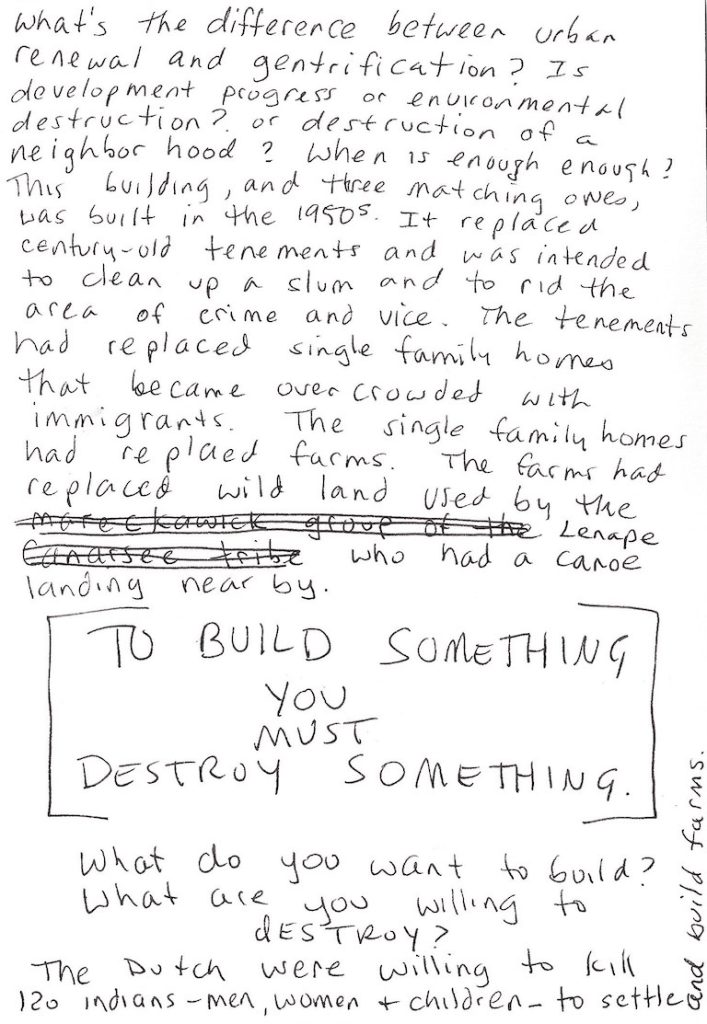 What's the difference between urban
renewal and gentrification? Is
development progress or environmental
destruction? or destruction of a
neighbor hood? When is enough enough?
This building, and three matching ones,
was built in the 1950s. It replaced
century-old tenements and was intended
to clean up a slum and to rid the
area of crime and vice. The tenements
had replaced single family homes
that became overcrowded with
immigrants. The single family homes
had replaed farms. The farms had
replaced wild land used by the
mareckawick group of the Lenape
Canarsee tribe who had a canoe
landing near by.
TO BUILD SOMETHING
YOU
MUST
DESTROY SOMETHING.
What do you want to build?
What are you willing to
dESTROY?
The Dutch were willing to kill
120 indians-men, women + children- to settle
and build farms.